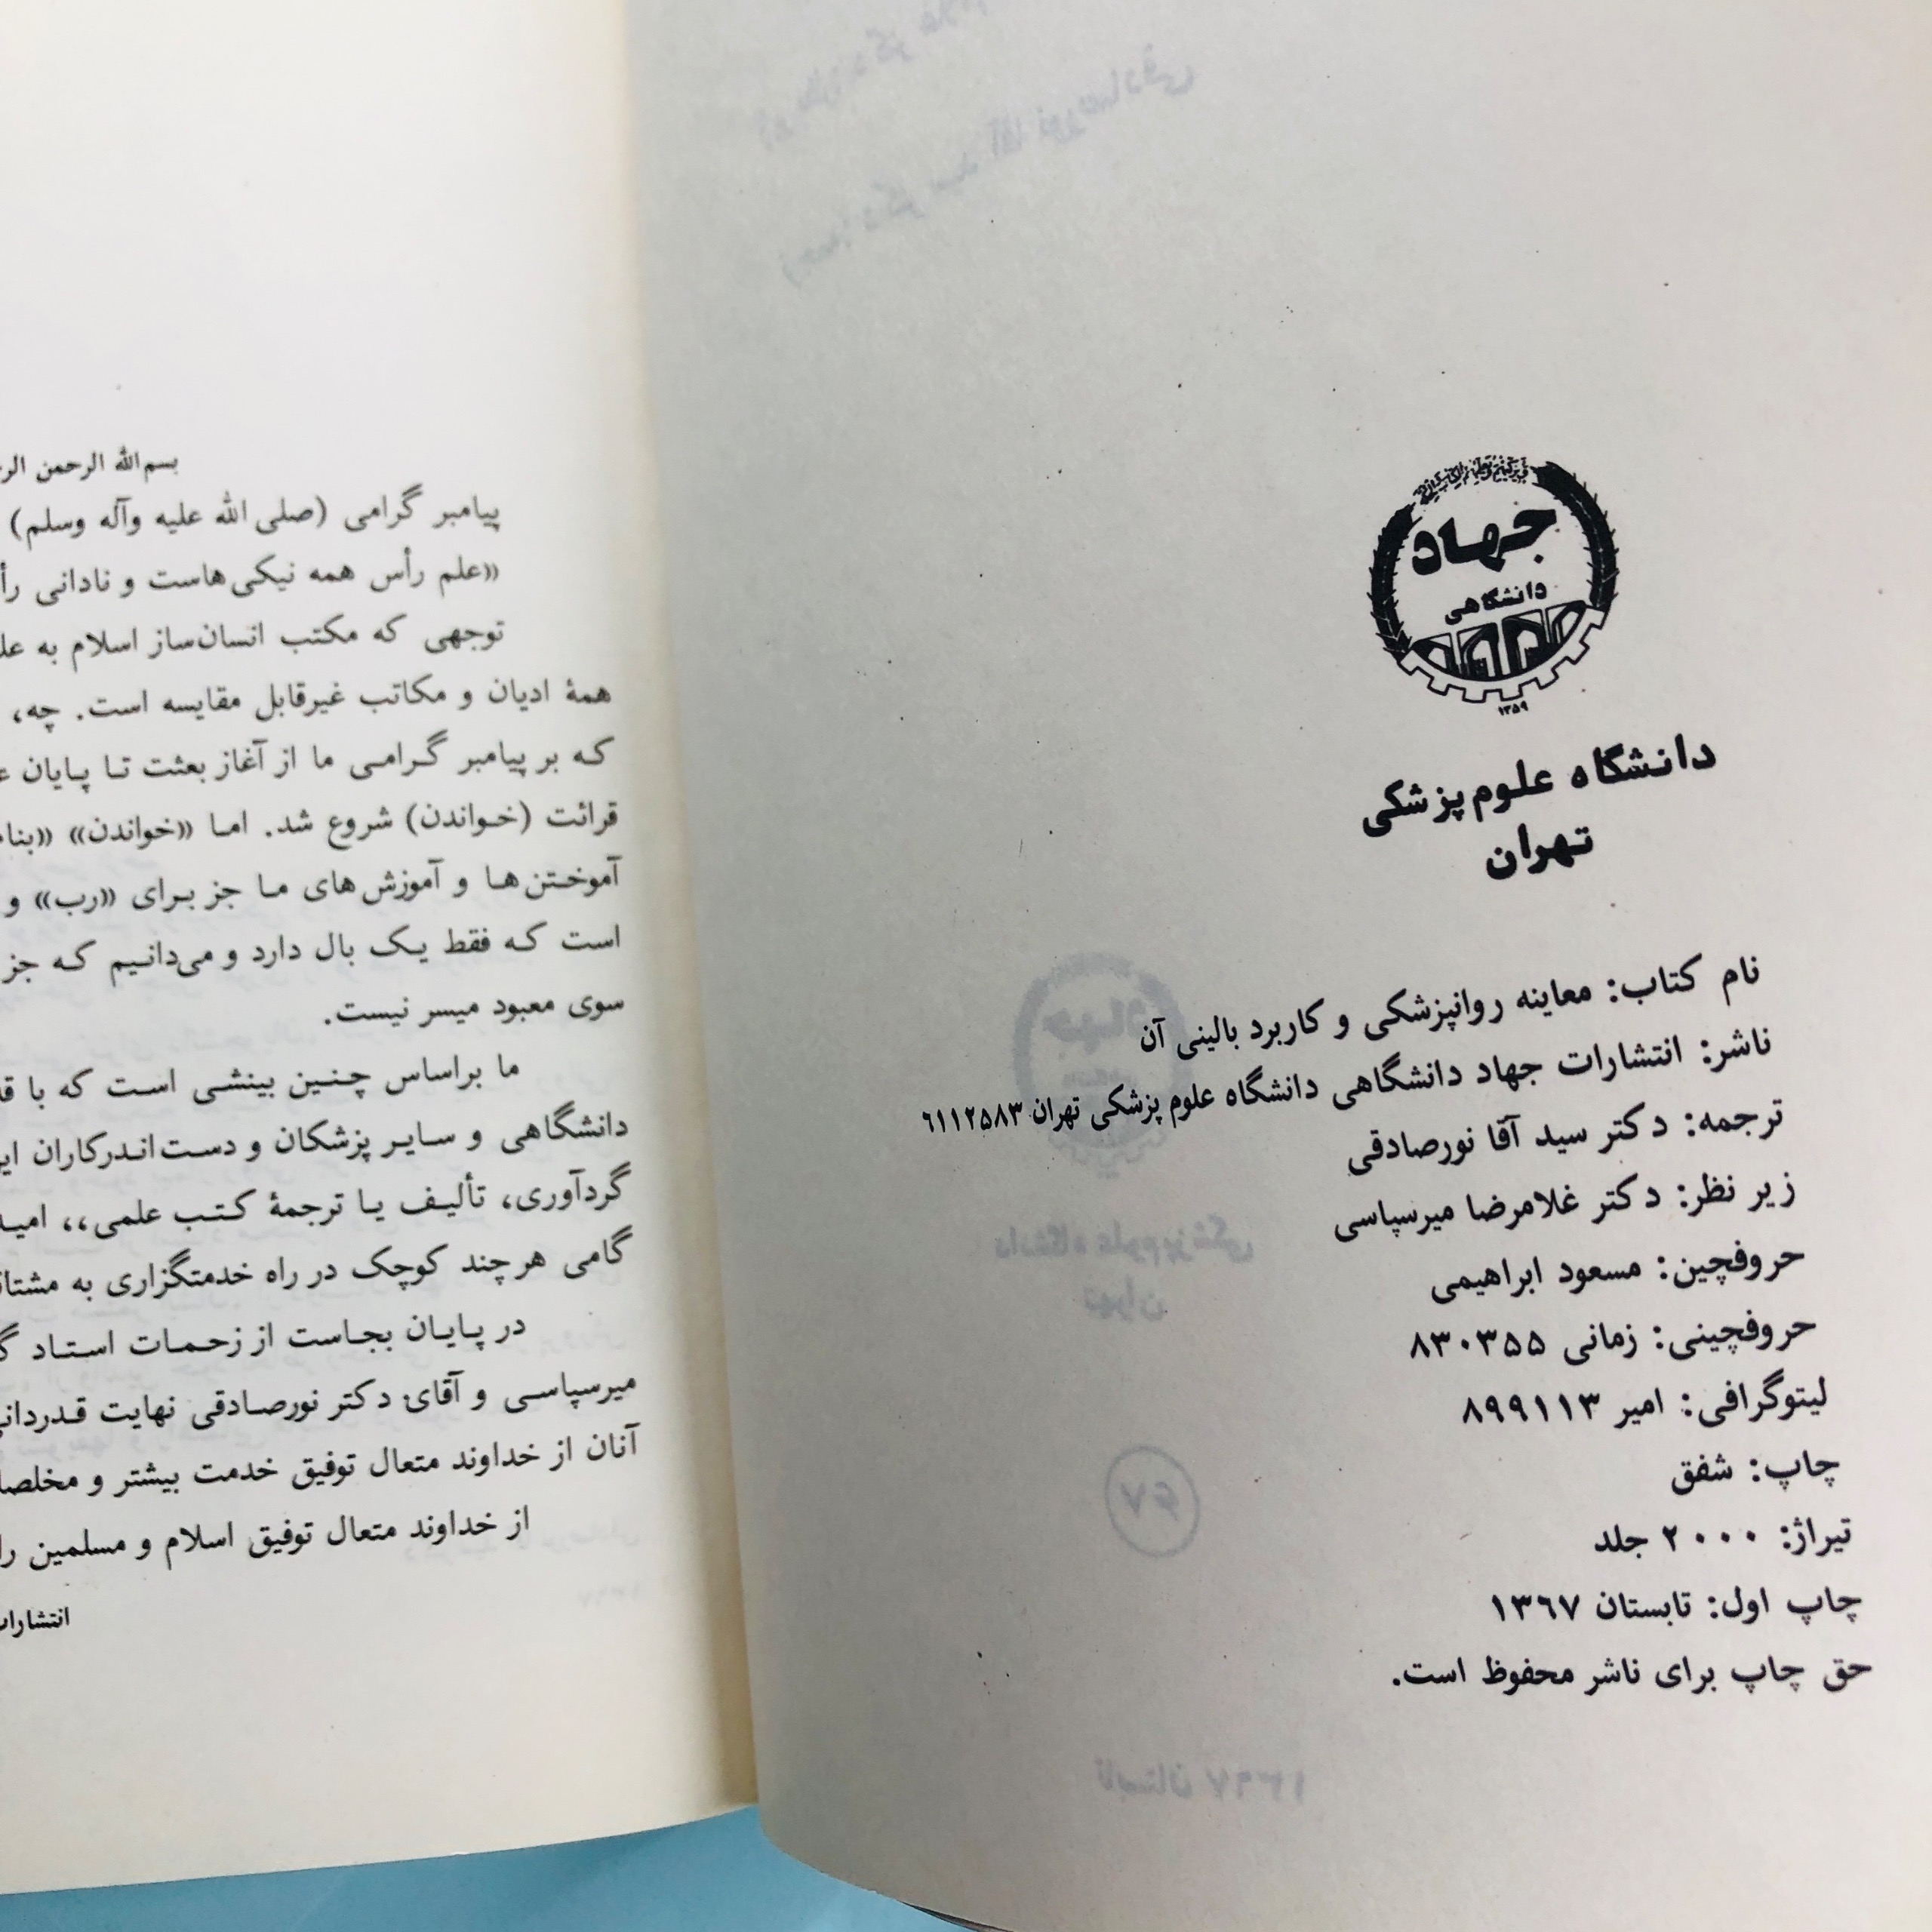 جهاد
دانشگاهی
۱۳۵۹
دانشگاه علوم پزشکی
تهران
نام کتاب: معاینه روانپزشکی و کاربرد بالینی آن
ناشر: انتشارات جهاد دانشگاهی دانشگاه علوم پزشکی تهران ۶۱۱۲۵۸۳
ترجمه: دکتر سید آقا نورصادقی
زیر نظر: دکتر غلامرضا میرسپاسی
حروفچین: مسعود ابراهیمی
حروفچینی: زمانی ۸۳۰۳۵۵
لیتوگرافی: امیر ۸۹۹۱۱۳
چاپ: شفق
تیراژ: ۲۰۰۰ جلد
چاپ اول: تابستان ۱۳۶۷
حق چاپ برای ناشر محفوظ است.
بسم‌الله الرحمن
پیامبر گرامی (صلی الله علیه وآله وسلم)
«علم رأس همه نیکی‌هاست و نادانی
توجهی که مکتب انسان‌ساز اسلام به
همهٔ ادیان و مکاتب غیرقابل مقایسه است. چه،
که بر پیامبر گرامی ما از آغاز بعثت تا پایان
قرائت (خواندن) شروع شد. اما «خواندن»
آموختن‌ها و آموزش‌های ما جز برای «رب» و
است که فقط یک بال دارد و می‌دانیم که جز
سوی معبود میسر نیست.
ما براساس چنین بینشی است که با
دانشگاهی و سایر پزشکان و دست‌اندرکاران
گردآوری، تألیف یا ترجمهٔ کتب علمی،،
گامی هرچند کوچک در راه خدمتگزاری به
در پایان بجاست از زحمات استاد
میرسپاسی و آقای دکتر نورصادقی نهایت
آنان از خداوند متعال توفیق خدمت بیشتر و
از خداوند متعال توفیق اسلام و مسلمین